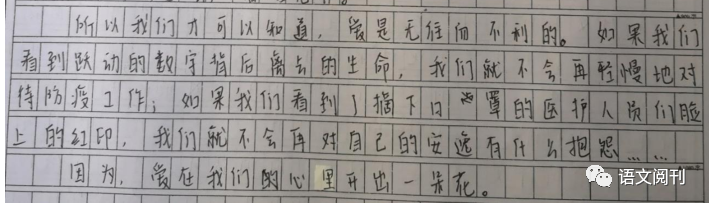 所以我们才可以知道，爱是无往而不利的。如果我们
看到跃动的数字背后离去的生命，我们就不会再轻慢地对
待防疫工作；如果我们看到了摘下口罩的医护人员们脸
上的红印，我们就不会再对自己的安逸有什么抱怨……
因为，爱在我们的心里开出一朵花。
语文阅刊